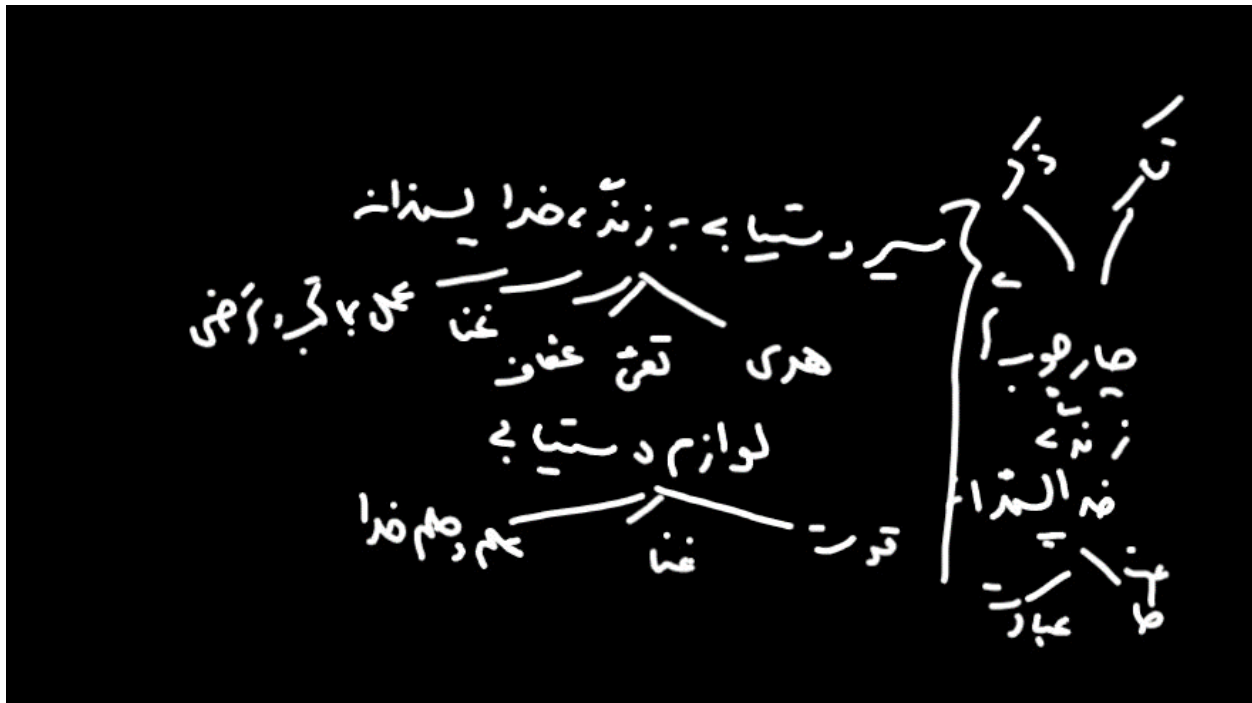 ذکر
چارچوب
زندگی
خداپسندانه
عبادت
سیر دستیابی به زندگی خداپسندانه
هدی تقی عفاف غنا عمل بما تحب و ترضی
لوازم دستیابی
قدرت غنا علم و حلم خدا